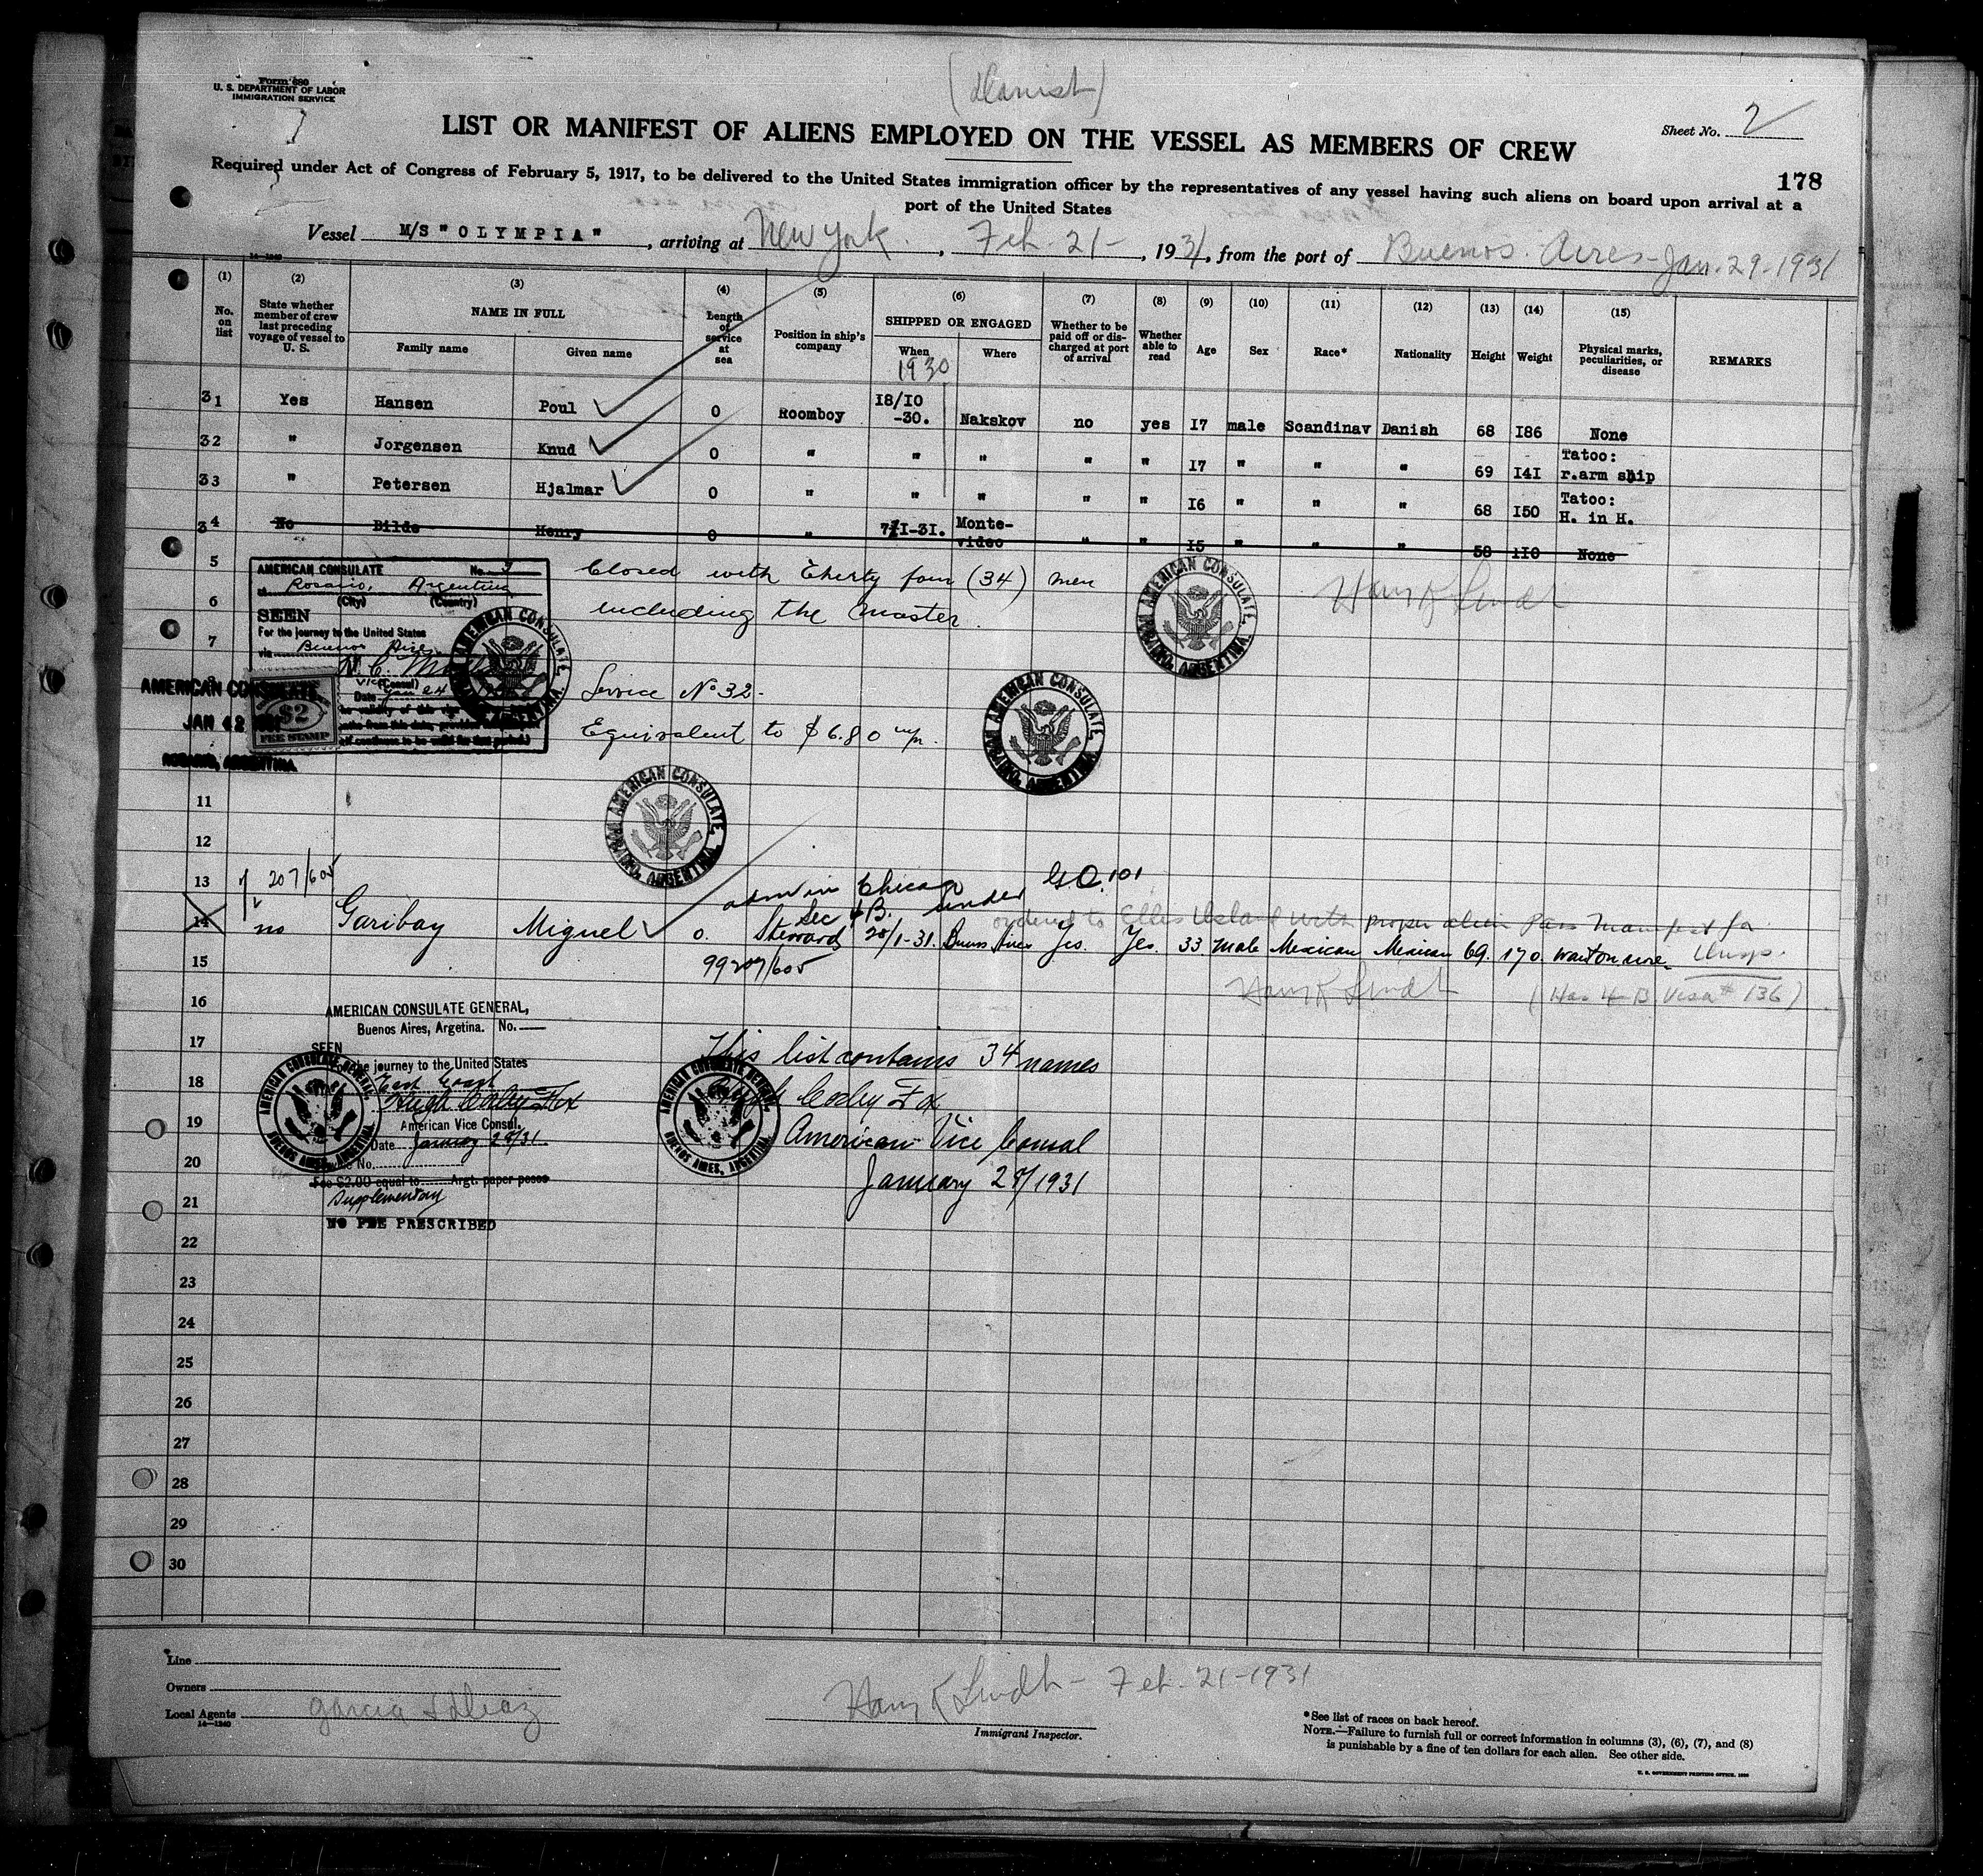 Form 680
U. S. DEPARTMENT OF LABOR
IMMIGRATION SERVICE
(Danish)
LIST OR MANIFEST OF ALIENS EMPLOYED ON THE VESSEL AS MEMBERS OF CREW
Sheet No. 2
178
Required under Act of Congress of February 5, 1917, to be delivered to the United States immigration officer by the representatives of any vessel having such aliens on board upon arrival at a
port of the United States
Vessel M/S "OLYMPIA", arriving at New York, Feb. 21-, 1931, from the port of Buenos Aires-Jan. 29-1931
14-1240
(1) (2) (3) (4) (5) (6) (7) (8) (9) (10) (11) (12) (13) (14) (15)
No. on list
State whether member of crew last preceding voyage of vessel to U. S.
NAME IN FULL
Family name
Given name
Length of service at sea
Position in ship's company
SHIPPED OR ENGAGED
When
1930
Where
Whether to be paid off or discharged at port of arrival
Whether able to read
Age
Sex
Race*
Nationality
Height
Weight
Physical marks, peculiarities, or disease
REMARKS
31 Yes Hansen Poul 0 Roomboy 18/10 -30. Nakskov no yes 17 male Scandinav Danish 68 186 None
32 " Jorgensen Knud 0 " " " " " 17 " " " 69 141 Tatoo: r.arm ship
33 " Petersen Hjalmar 0 " " " " " 16 " " " 68 150 Tatoo: H. in H.
34 No Bilde Henry 0 " 7/1-31. Monte-video " " 15 " " " 58 110 None
5
AMERICAN CONSULATE No. 3
at Rosario, Argentina
(City) (Country)
SEEN
For the journey to the United States
via Buenos Aires
Vice (Consul)
Date Jan 24
Closed with Thirty four (34) men
including the Master.
Harry K Lindh
6
7
AMERICAN CONSULATE
JAN 42
ROSARIO, ARGENTINA
$2
FEE STAMP
Service No 32-
Equivalent to $6.80 m/n.
AMERICAN CONSULATE, ROSARIO, ARGENTINA.
AMERICAN CONSULATE, ROSARIO, ARGENTINA.
AMERICAN CONSULATE, ROSARIO, ARGENTINA.
AMERICAN CONSULATE, ROSARIO, ARGENTINA.
11
12
13
207/605
adm in Chicago under G.O. 101
ordered to Ellis Island with proper alien Pass Manifest for
14 no Garibay Miguel 0. Sec & B. Steward 28/1-31. Buenos Aires Yes. Yes. 33 male Mexican Mexican 69. 170.
99207/605
15
Harry K Lindh
(Has 4-B Visa # 136)
16
AMERICAN CONSULATE GENERAL,
Buenos Aires, Argetina. No.
17
SEEN
For the journey to the United States
East Coast
Hugh Corby Fox
American Vice Consul.
Date January 28/31
Service No.
Fee $2.00 equal to Argt. paper pesos
Supplementary
NO FEE PRESCRIBED
AMERICAN CONSULATE GENERAL, BUENOS AIRES, ARGENTINA.
This list contains 34 names
Hugh Corby Fox
American Vice Consul
January 28/1931
AMERICAN CONSULATE GENERAL, BUENOS AIRES, ARGENTINA.
18
19
20
21
22
23
24
25
26
27
28
29
30
Line
Owners
Local Agents Garcia & Diaz
14-1240
Harry K Lindh- Feb. 21-1931
Immigrant Inspector.
*See list of races on back hereof.
NOTE.—Failure to furnish full or correct information in columns (3), (6), (7), and (8)
is punishable by a fine of ten dollars for each alien. See other side.
U. S. GOVERNMENT PRINTING OFFICE. 1930